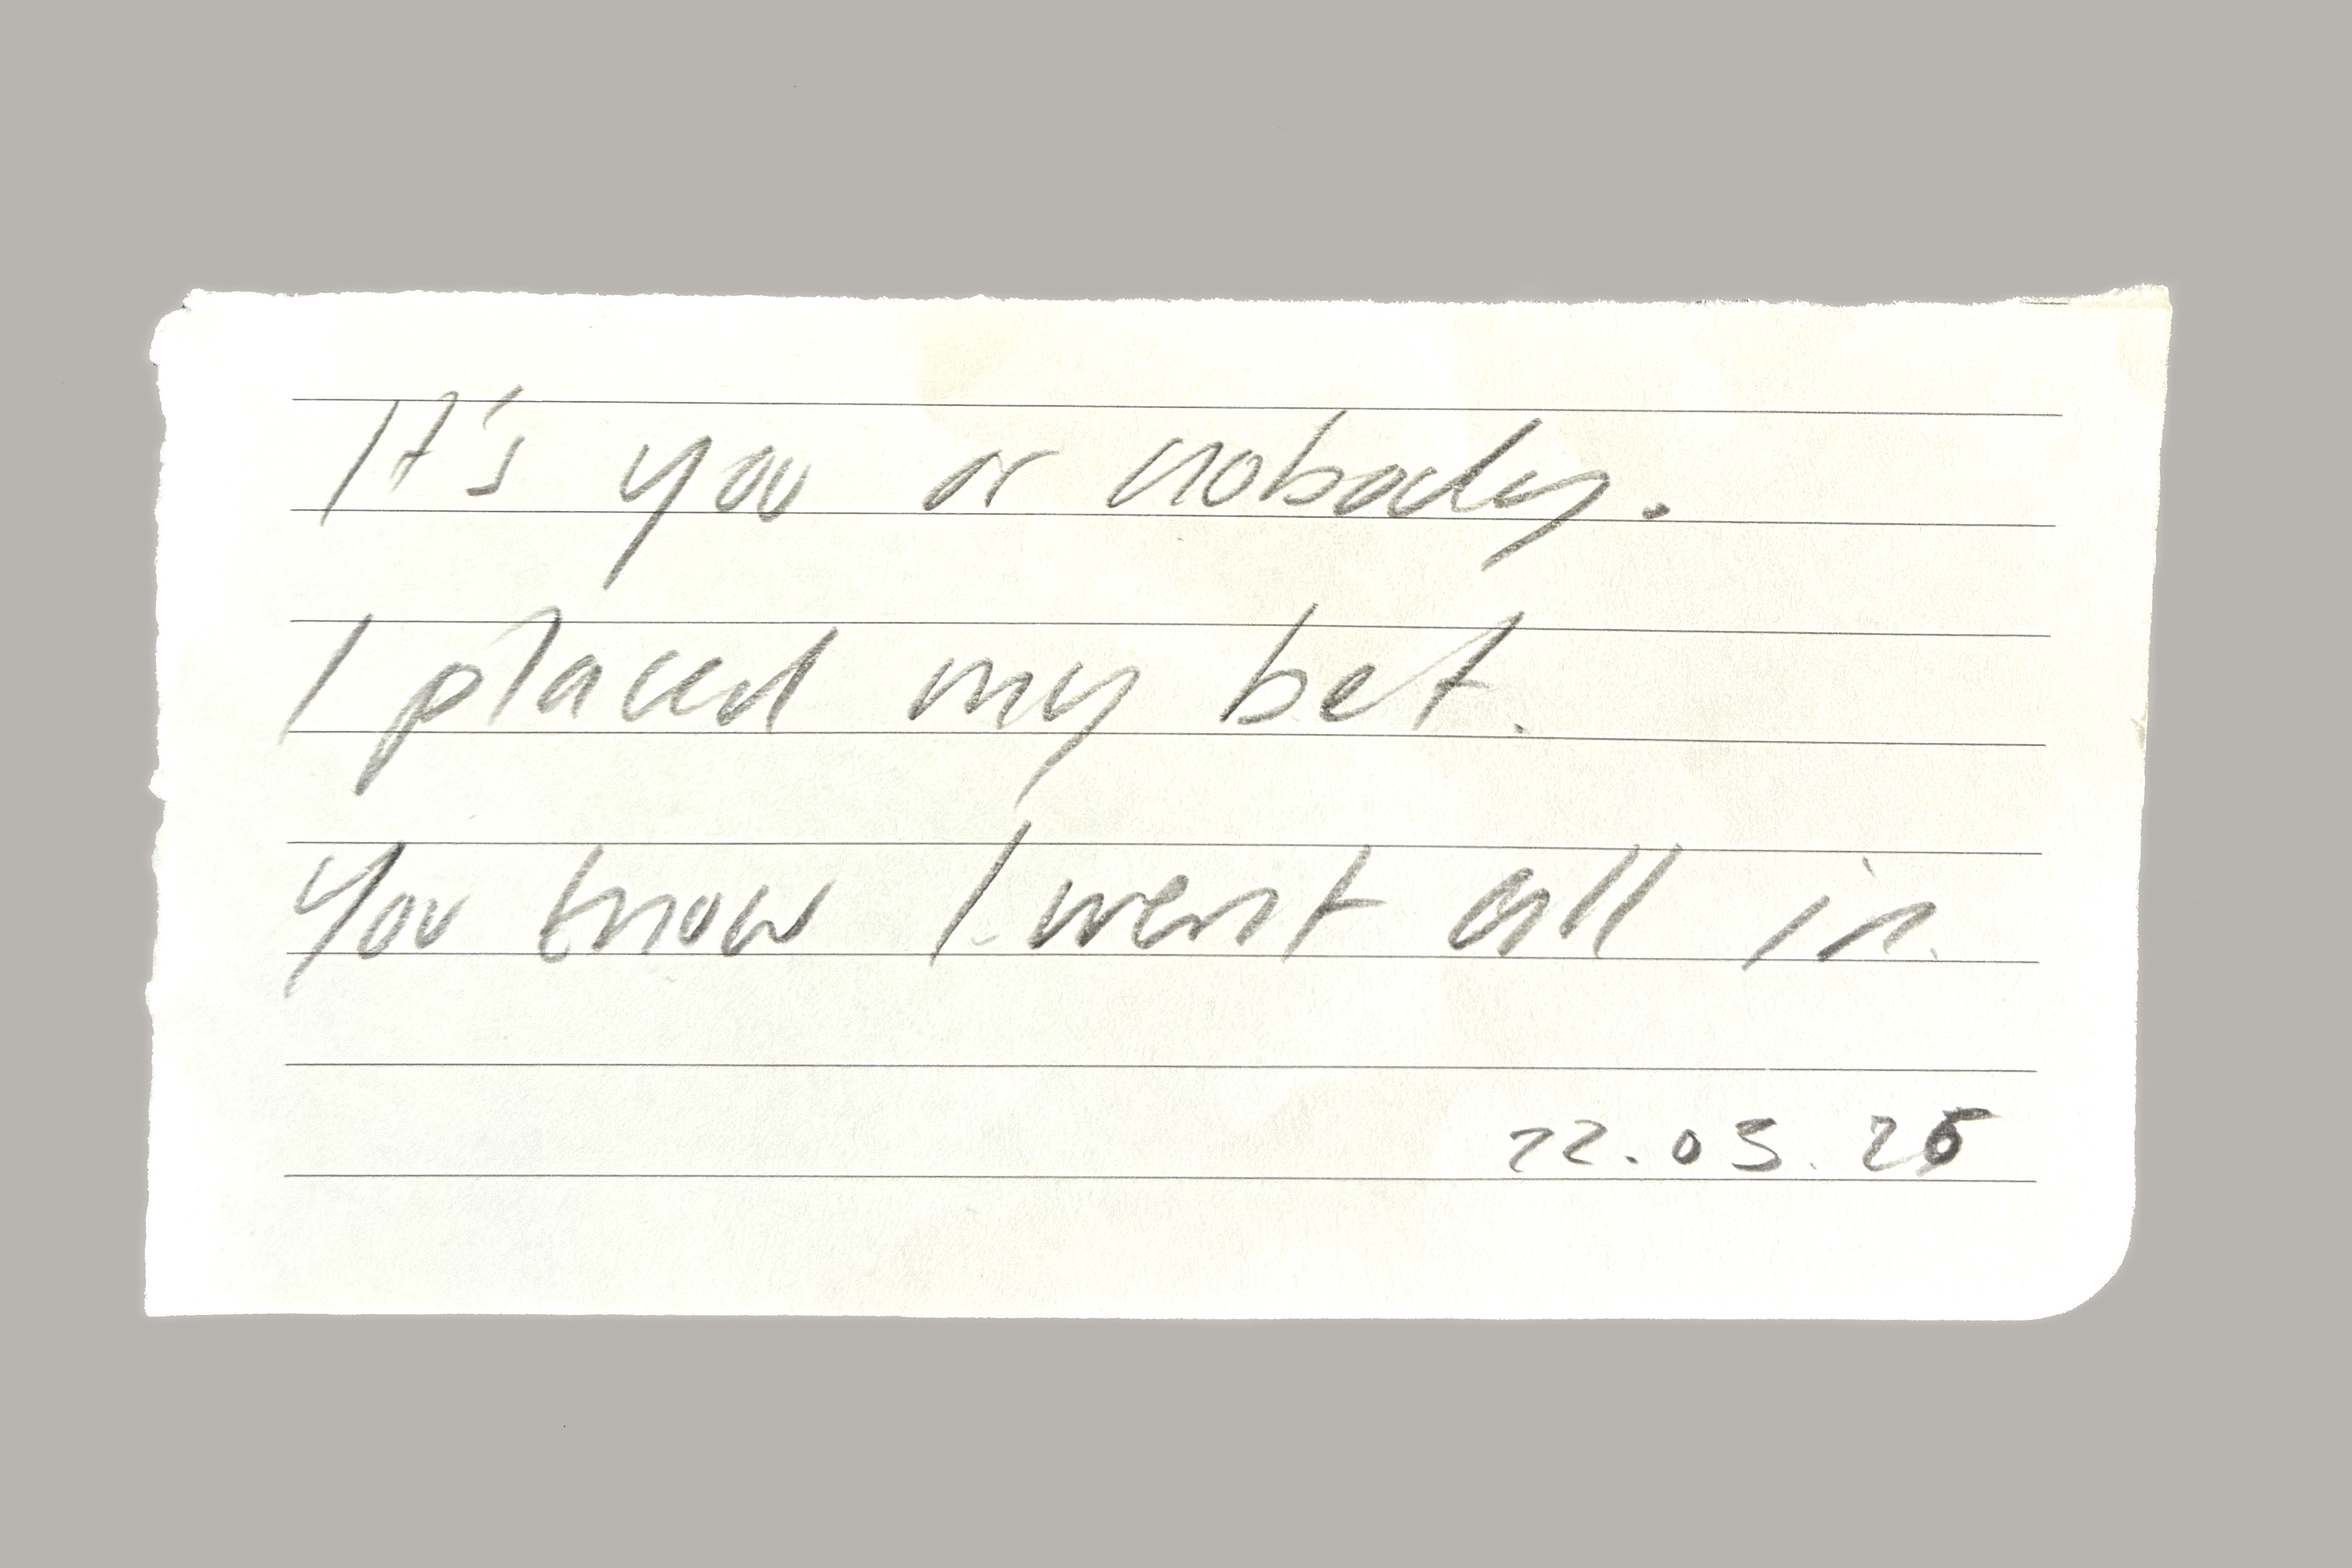 It's you or nobody.
I placed my bet.
You know I went all in.
22.05.26